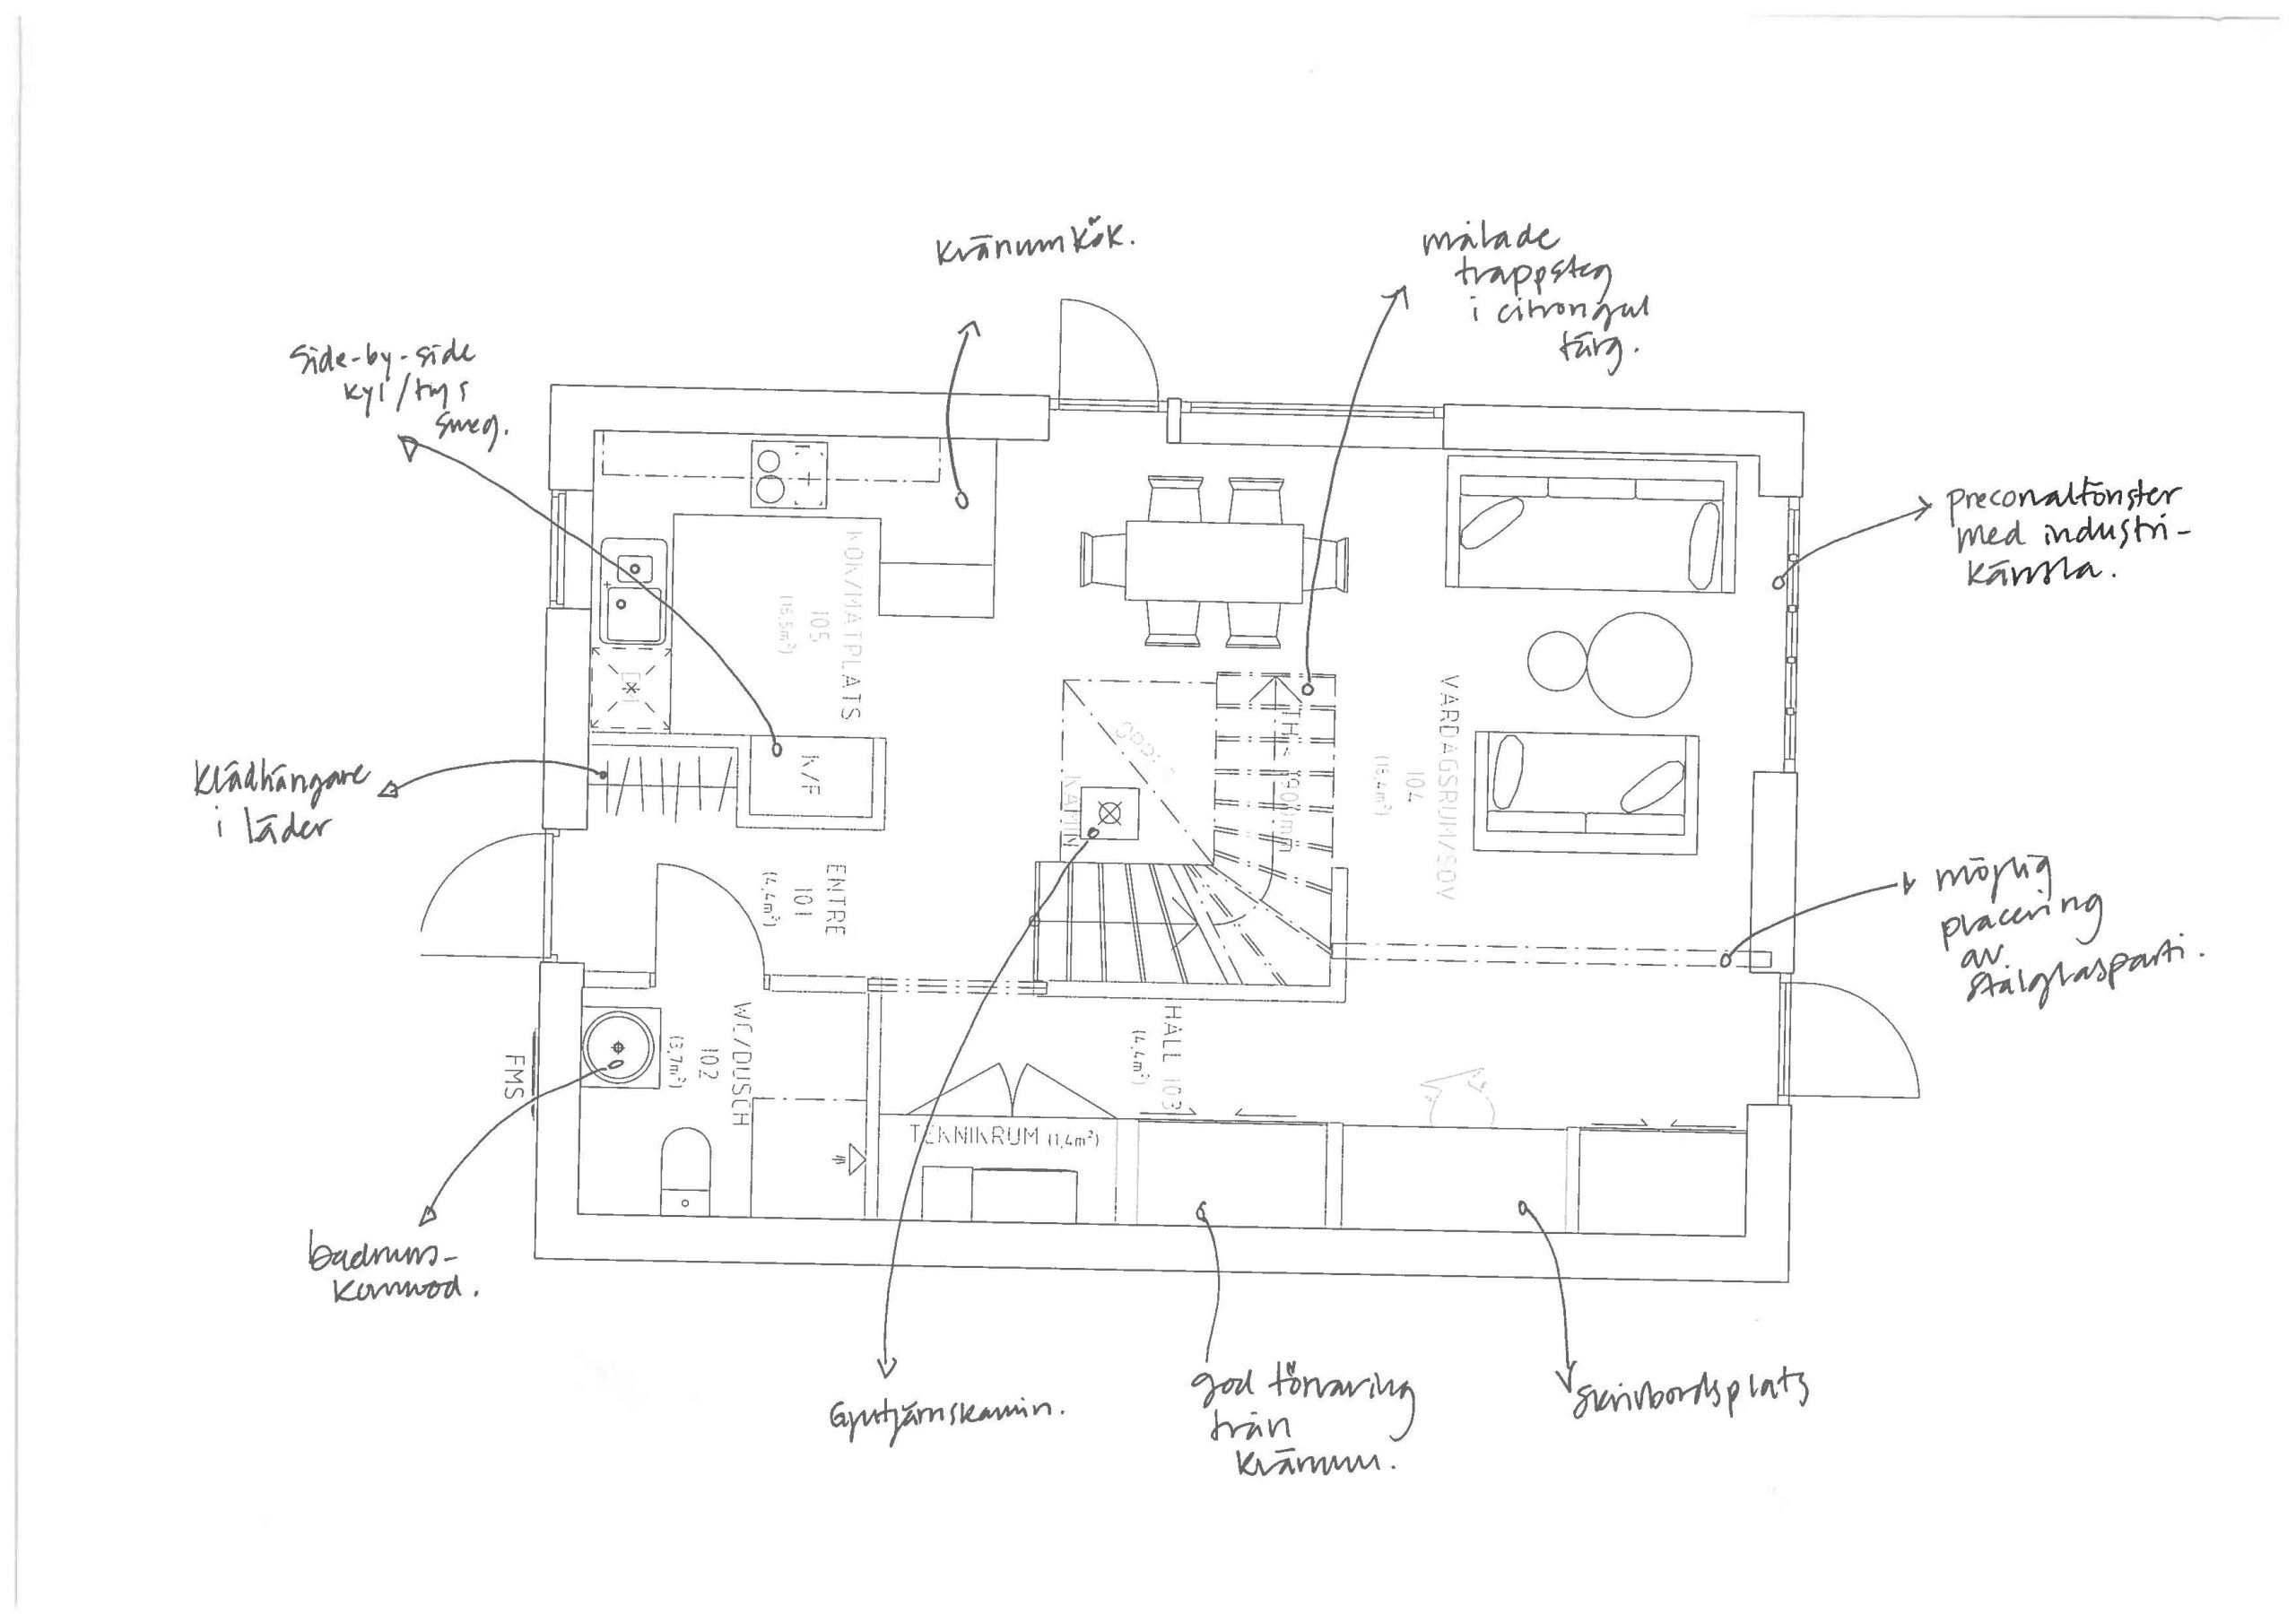 Kvänum kök.
målade
trappsteg
i citrongul
färg.
Side-by-side
kyl/frys
Smeg.
preconalfönster
med industri-
känsla.
KÖK/MATPLATS
105
(15,5m²)
K/F
Klädhängare
i läder
KAMIN
VARDAGSRUM/SOV
104
(15,4m²)
ENTRE
101
(4,4m²)
möjlig
placering
av
stålglasparti.
WC/DUSCH
102
(3,7m²)
FMS
HALL 103
(4,4m²)
TEKNIKRUM (1,4m²)
badrums-
kommod.
Gjutjärnskamin.
god förvaring
från
Kvänum.
Skrivbordsplats